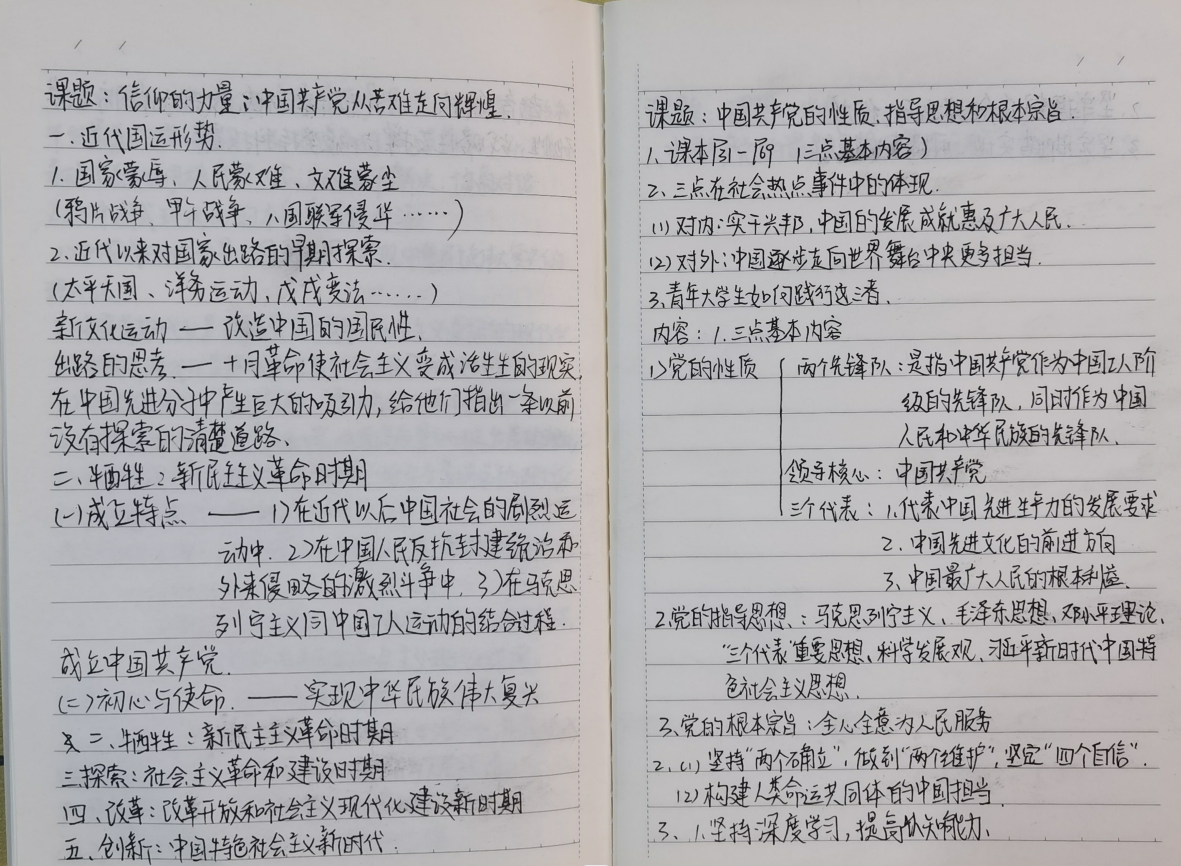 课题：信仰的力量：中国共产党从苦难走向辉煌.
一.近代国运形势.
1.国家蒙辱、人民蒙难、文难蒙尘
(鸦片战争、甲午战争、八国联军侵华……)
2.近代以来对国家出路的早期探索.
(太平天国、洋务运动,戊戌变法……)
新文化运动 — 改造中国的国民性.
出路的思考.—十月革命使社会主义变成活生生的现实,
在中国先进分子中产生巨大的吸引力,给他们指出一条以前
没有探索的清楚道路、
二、牺牲：新民主主义革命时期
(一)成立特点 —— 1)在近代以后中国社会的剧烈运
动中. 2)在中国人民反抗封建统治和
外来侵略的激烈斗争中. 3)在马克思
列宁主义同中国工人运动的结合过程.
成立中国共产党.
(二)初心与使命.——实现中华民族伟大复兴
二、牺牲：新民主主义革命时期
三.探索：社会主义革命和建设时期
四、改革：改革开放和社会主义现代化建设新时期
五、创新：中国特色社会主义新时代.
课题：中国共产党的性质、指导思想和根本宗旨.
1、课本 (三点基本内容)
2、三点在社会热点事件中的体现.
(1)对内：实干兴邦,中国的发展成就惠及广大人民.
(2)对外：中国逐步走向世界舞台中央更多担当.
3.青年大学生如何践行这三者.
内容：1.三点基本内容
1>党的性质 两个先锋队：是指中国共产党作为中国工人阶
级的先锋队,同时作为中国
人民和中华民族的先锋队.
领导核心：中国共产党
三个代表：1.代表中国先进生产力的发展要求
2.中国先进文化的前进方向
3.中国最广大人民的根本利益.
2.党的指导思想.：马克思列宁主义、毛泽东思想、邓小平理论、
“三个代表”重要思想、科学发展观、习近平新时代中国特
色社会主义思想.
3.党的根本宗旨：全心全意为人民服务
2.(1)坚持“两个确立”,做到“两个维护”,坚定“四个自信”.
(2)构建人类命运共同体的中国担当.
3、1.坚持深度学习,提高认知能力、